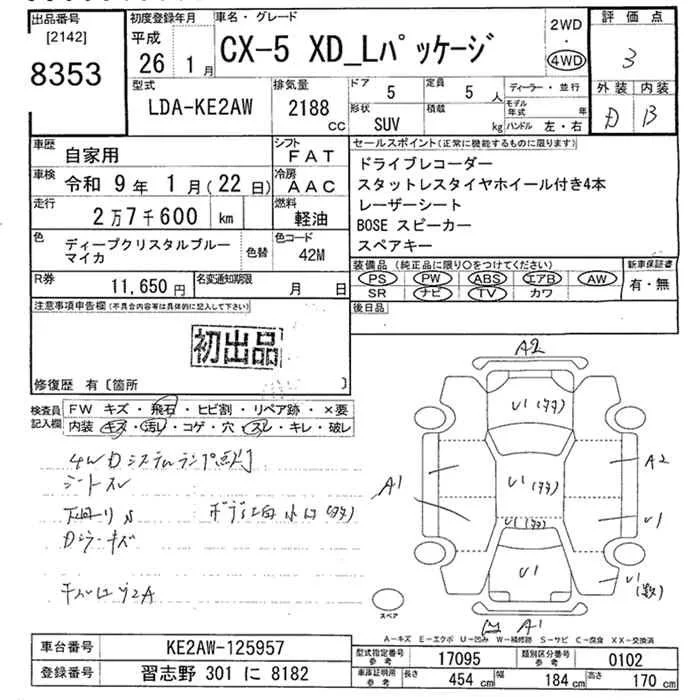 出品番号
[2142]
8353
初度登録年月
平成
26年 1月
車名・グレード
CX-5 XD_Lパッケージ
2WD
・
4WD
評価点
3
外装 内装
D B
型式
LDA-KE2AW
排気量
2188
CC
ドア
5
定員
5人
形状
SUV
積載
kg
ディーラー・並行
モデル年式 年
ハンドル 左・右
車歴
自家用
シフト
FAT
車検
令和 9年 1月(22日)
冷房
AAC
走行
2万7千600 km
燃料
軽油
色
ディープクリスタルブルー
マイカ
色替
色コード
42M
R券
11,650円
名変通知期限
月 日
セールスポイント(正常に機能するものに限ります)
ドライブレコーダー
スタットレスタイヤホイール付き4本
レーザーシート
BOSE スピーカー
スペアキー
装備品 (純正品に限り○をつけてください)
PS PW ABS エアB AW
SR ナビ TV カワ
新車保証書
有・無
後日品
注意事項申告欄(不具合内容等は具体的に記入して下さい)
初出品
修復歴 有〔箇所 〕
検査員
記入欄
FW キズ・飛石・ヒビ割・リペア跡・×要
内装 キズ・汚レ・コゲ・穴・スレ・キレ・破レ
4WDシステムランプ点灯
シートスレ
A2
U1
A1
A2
U1
U1
U1
U1
U1
A1
スペア
A-キズ E-エクボ U-凹み W-補修跡 S-サビ C-腐食 XX-交換済
車台番号
KE2AW-125957
登録番号
習志野 301 に 8182
型式指定番号
参考
17095
類別区分番号
参考
0102
車庫証明用
参考
長さ 454 cm 幅 184 cm 高さ 170 cm